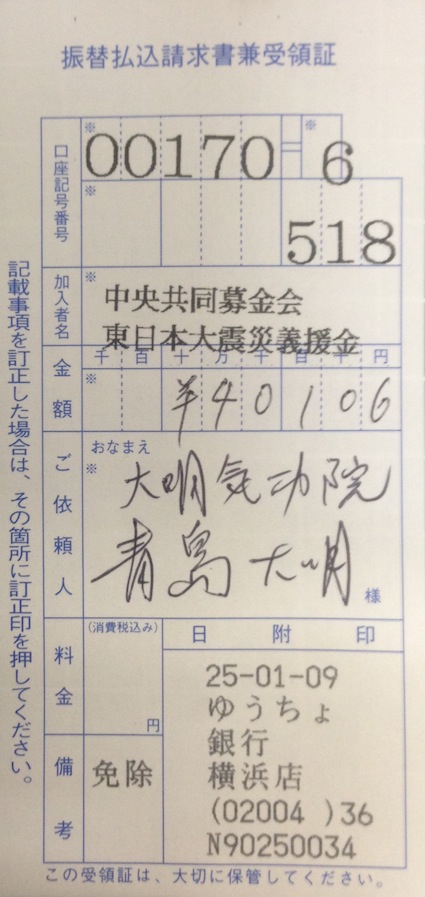 振替払込請求書兼受領証
口座記号番号
※
00170
※
6
※
518
加入者名
※
中央共同募金会
東日本大震災義援金
金額
千 百 十 万 千 百 十 円
※
¥40106
ご依頼人
おなまえ
※
大明気功院
青島大明
様
料金
(消費税込み)
円
備考
免除
日附印
25-01-09
ゆうちょ
銀行
横浜店
(02004 )36
N90250034
この受領証は、大切に保管してください。
記載事項を訂正した場合は、その箇所に訂正印を押してください。